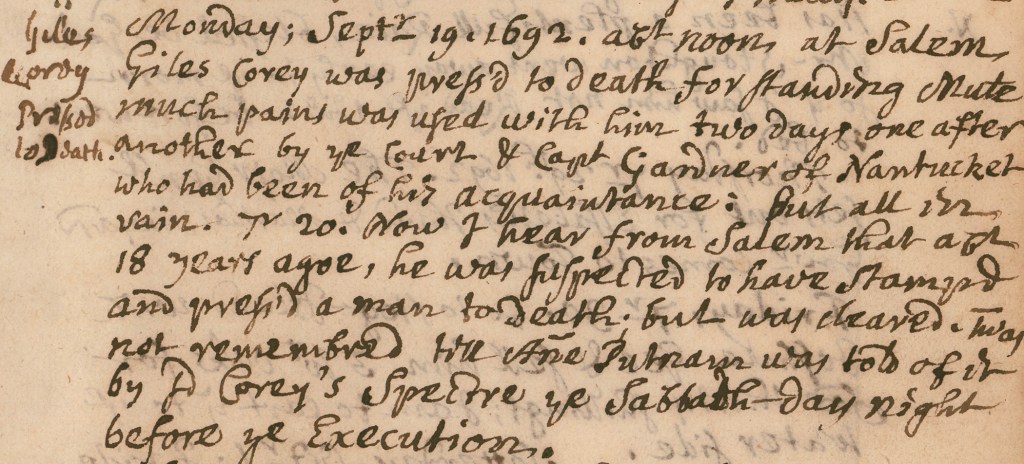 Giles
Corey
Pressed
to Death.
Monday; Septr 19. 1692. abt noon, at Salem,
Giles Corey was press'd to death for standing Mute
much pains was used with him two days, one after
another by ye Court & Capt Gardner of Nantucket
who had been of his acquaintance: but all in
vain. 7r 20. Now I hear from Salem that abt
18 years agoe, he was suspected to have stampd
and press'd a man to death; but was cleared. Twas
not remembred till Ane Putnam was told of it
by sd Corey's Spectre ye Sabbath-day night
before ye Execution.